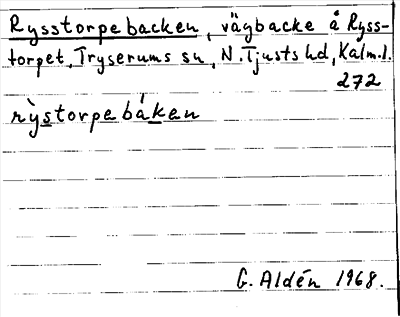 Rysstorpebacken, vägbacke å Ryss-
torpet, Tryserums sn, N. Tjusts hd, Kalm. l.
272
rỳstorpebáken
G. Aldén 1968.